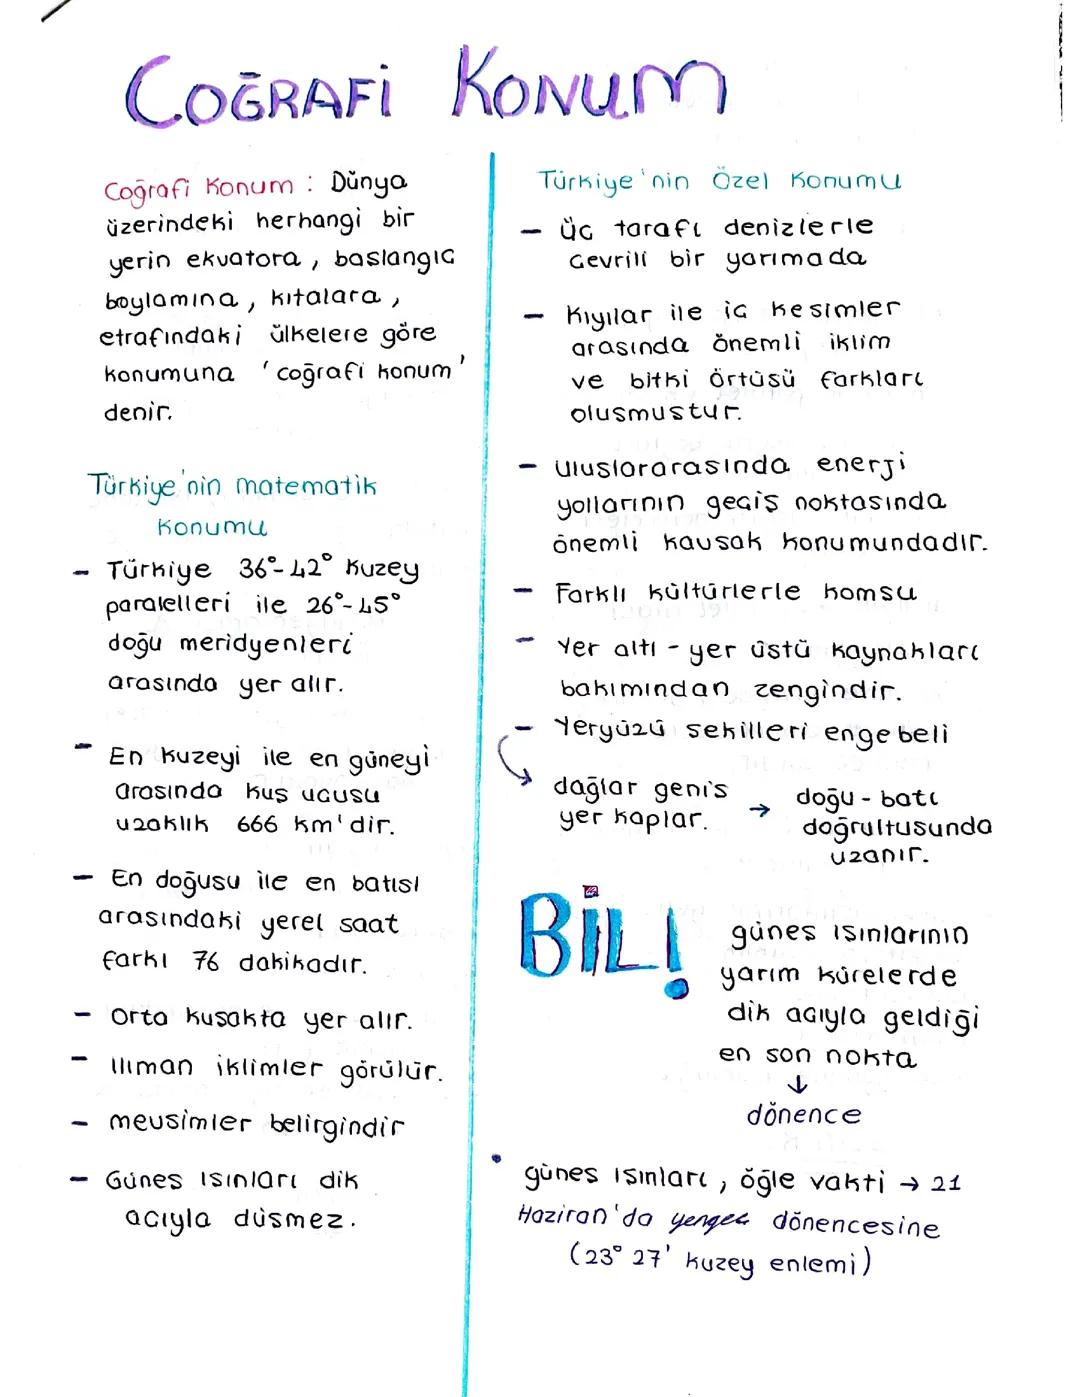 COĞRAFİ KONUM
Coğrafi Konum : Dünya
üzerindeki herhangi bir
yerin ekvatora, baslangıc
boylamına, kıtalara,
etrafındaki ülkelere göre
konumuna 'coğrafi konum'
denir.
Türkiye'nin matematik
konumu
- Türkiye 36°-42° kuzey
paralelleri ile 26°-45°
doğu meridyenleri
arasında yer alır.
- En kuzeyi ile en güneyi
arasında kuş ucusu
uzaklık 666 km'dir.
- En doğusu ile en batısı
arasındaki yerel saat
farkı 76 dakikadır.
- Orta kusakta yer alır.
- Ilıman iklimler görülür.
- mevsimler belirgindir
- Günes ısınları dik
acıyla düsmez.
Türkiye'nin Özel Konumu
- Üc tarafı denizlerle
cevrili bir yarımada
- Kıyılar ile ic kesimler
arasında önemli iklim
ve bitki örtüsü farkları
olusmustur.
- Uluslararasında enerji
yollarının geciş noktasında
önemli kavsak konumundadır.
- Farklı kültürlerle komsu
- Yer altı - yer üstü kaynakları
bakımından zengindir.
- Yeryüzü sekilleri engebeli
dağlar genis
yer kaplar. → doğu - batı
doğrultusunda
uzanır.
BİL!
günes ısınlarının
yarım kürelerde
dik acıyla geldiği
en son nokta
↓
dönence
• günes ısınları, öğle vakti → 21
Haziran'da yengec dönencesine
(23° 27' kuzey enlemi)